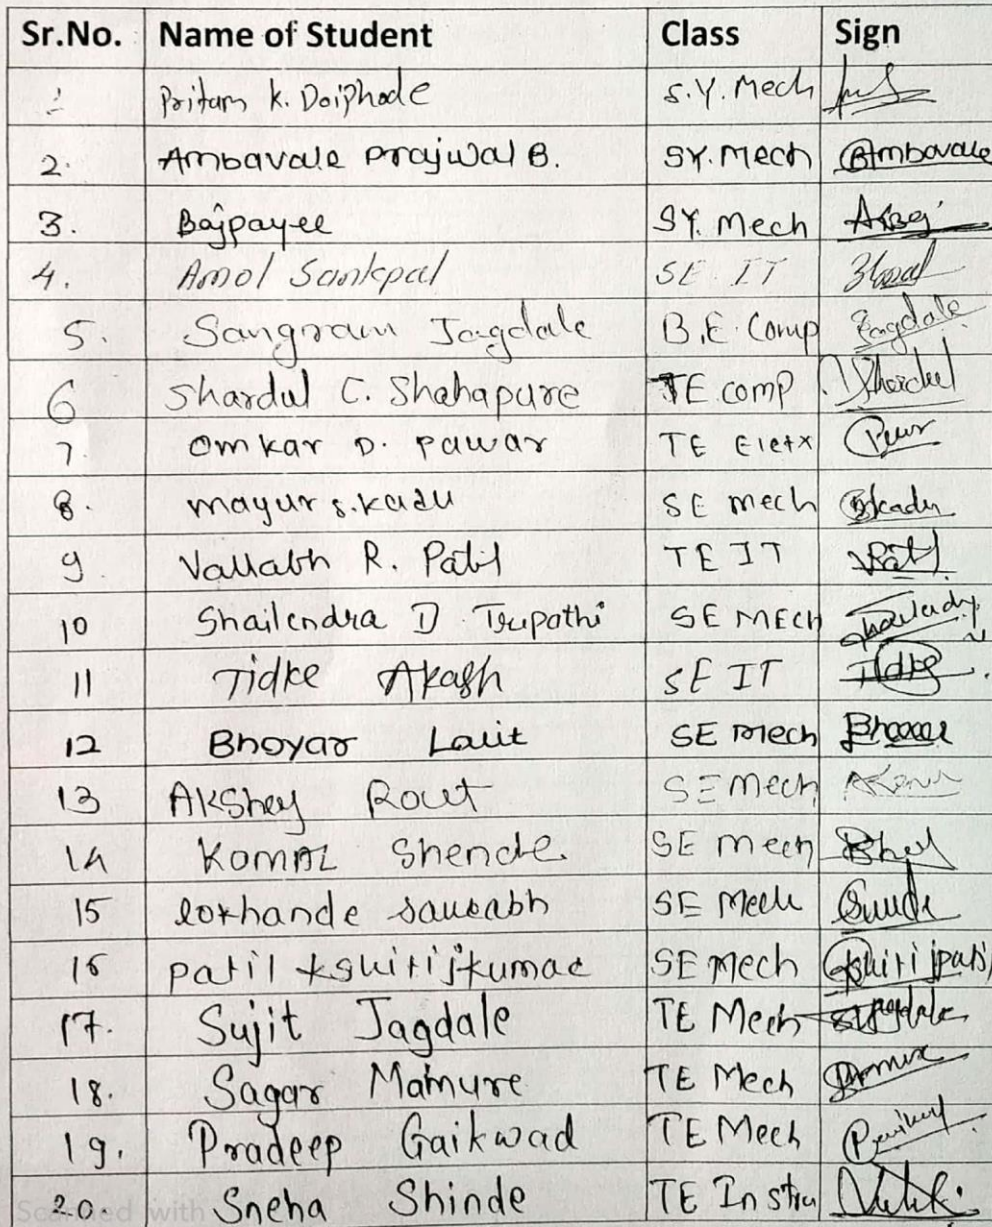 Sr.No. Name of Student Class Sign
1 Pritam K. Doiphode S.Y. Mech
2. Ambavale Prajwal B. SY. Mech Ambavale
3. Bajpayee SY. Mech
4. Amol Sankpal SE IT
5. Sangram Jagdale B.E. Comp Jagdale
6 Shardul C. Shahapure TE comp Shardul
7. Omkar D. Pawar TE Eletx
8. mayur s. kadu SE mech Skadu
9 Vallabh R. Patil TE IT Patil
10 Shailendra D Tripathi SE MECH
11 Tidke Akash SE IT Tidke
12 Bhoyar Lalit SE mech
13 Akshey Rout SE Mech
14 Komal Shende SE mech
15 lokhande saurabh SE Mech
16 patil kshitijkumar SE Mech Kshitijpatil
17. Sujit Jagdale TE Mech SJagdale
18. Sagar Mamure TE Mech
19. Pradeep Gaikwad TE Mech
20. Sneha Shinde TE Instru
Scanned with